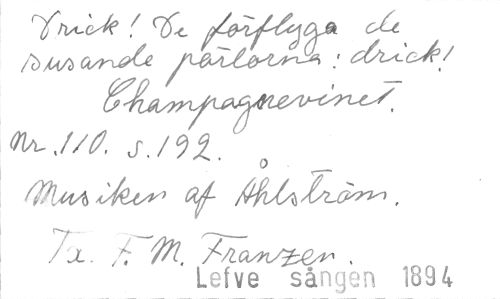 Drick! De förflyga de
susande pärlorna: drick!
Champagnevinet.
Nr. 110. s. 192.
Musiken af Åhlström.
Tx. F. M. Franzén.
Lefve sången 1894